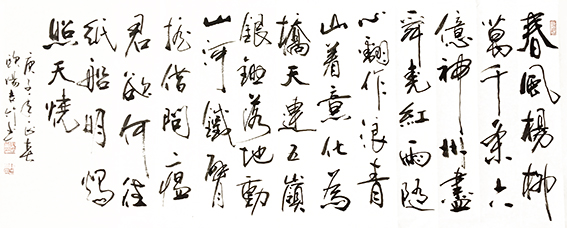 春風楊柳
萬千条六
億神州盡
舜堯紅雨隨
心翻作浪青
山着意化為
橋天連五嶺
銀鋤落地動
山河鐵臂
搖借問瘟
君欲何往
紙船明燭
照天燒
庚子